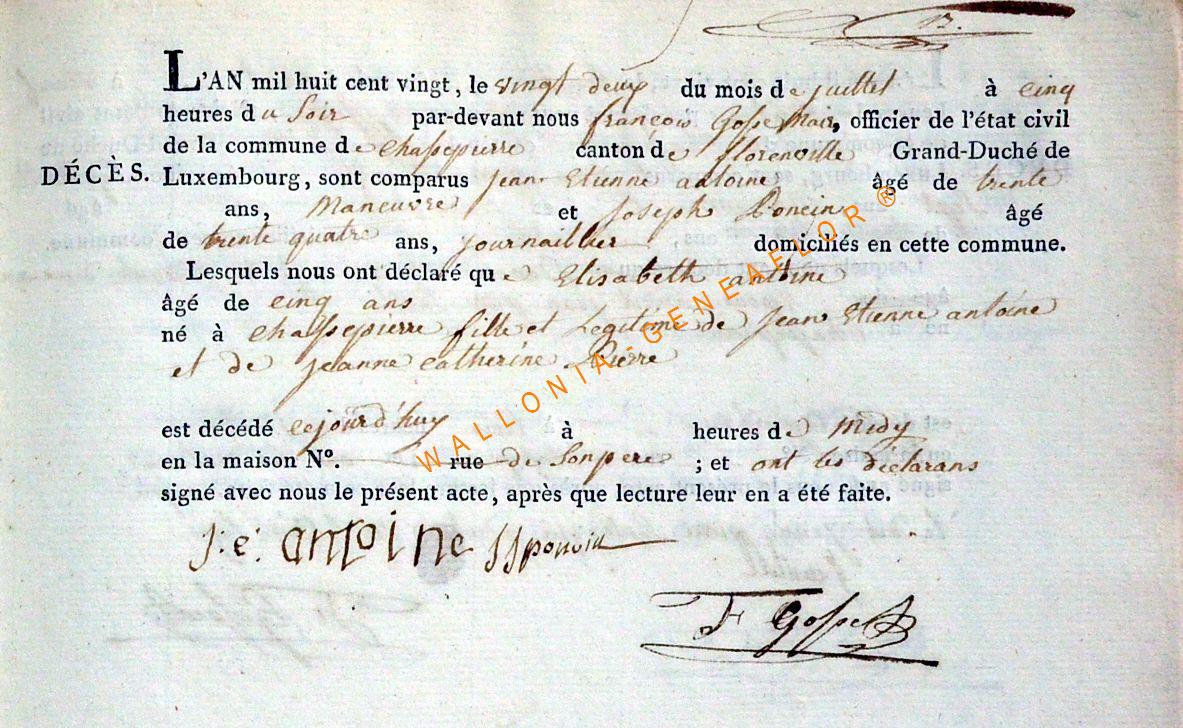 13.
L'AN mil huit cent vingt, le vingt deux du mois de juillet à cinq
heures du Soir par-devant nous françois Gosse Maire, officier de l'état civil
de la commune de chassepierre canton de florenville Grand-Duché de
DÉCÈS. Luxembourg, sont comparus Jean Etienne antoine âgé de trente
ans, Maneuvre et Joseph Poncin âgé
de trente quatre ans, journaillier domiciliés en cette commune.
Lesquels nous ont déclaré que Elisabeth antoine
âgé de cinq ans
né à chassepierre fille et Legitime de Jean Etienne antoine
et de jeanne catherine Pierre
est décédé cejourd'huy à heures de Midy
en la maison Nº. rue de Son pere ; et ont les declarans
signé avec nous le présent acte, après que lecture leur en a été faite.
j: e: antoine JJ poncin
F Gosse
WALLONIA-GENEAELOR ®